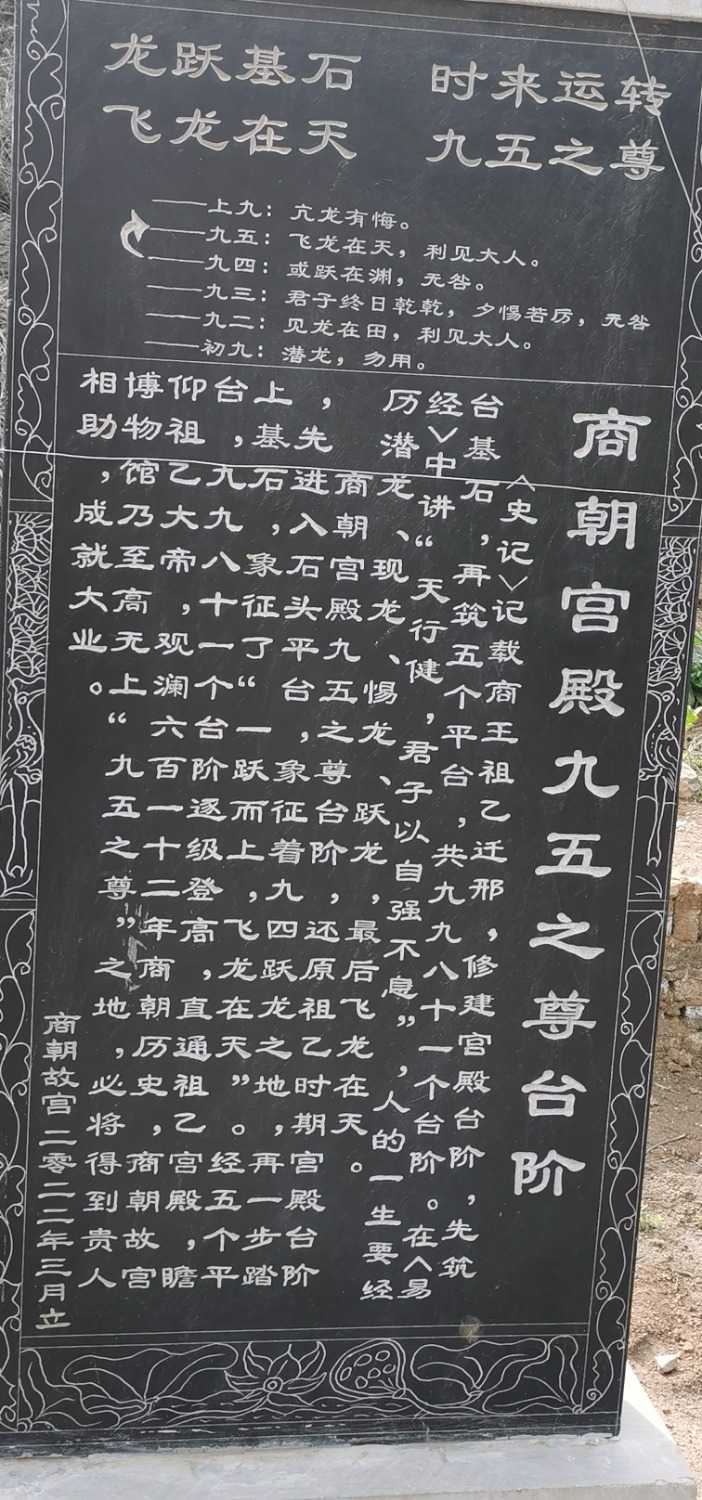 龙跃基石　时来运转
飞龙在天　九五之尊
——上九：亢龙有悔。
——九五：飞龙在天，利见大人。
——九四：或跃在渊，无咎。
——九三：君子终日乾乾，夕惕若厉，无咎
——九二：见龙在田，利见大人。
——初九：潜龙，勿用。
商朝宫殿九五之尊台阶
《史记》记载商王祖乙迁邢，修建宫殿台阶，先筑
台基石，再筑五个平台，共九九八十一个台阶。在《易
经》中讲“天行健，君子以自强不息”，人的一生要经
历潜龙、现龙、惕龙、跃龙，最后飞龙在天。
商朝宫殿九五之尊台阶，还原祖乙时期宫殿台阶
，先进入石头平台，象征着九四跃龙之地，再一步踏
上基石，象征了“一跃而上，飞龙在天”。经五个平
台，九九八十一个台阶逐级登高，直通祖乙宫殿，瞻
仰祖乙大帝，观澜六百一十二年商朝历史，商朝故宫
博物馆乃至高无上“九五之尊”之地，必将得到贵人
相助，成就大业。
商朝故宫二零二二年三月立